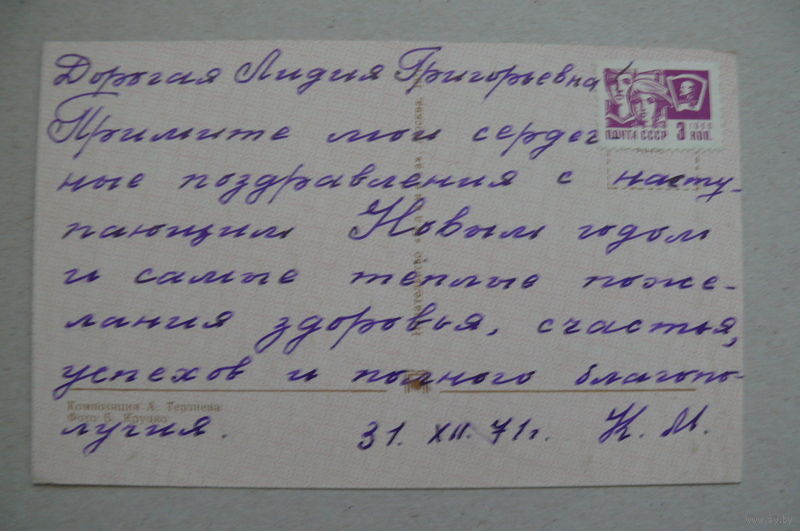 Дорогая Лидия Григорьевна!
Примите мои сердеч
ные поздравления с насту-
пающим Новым годом
и самые теплые поже-
лания здоровья, счастья,
успехов и полного благопо-
лучия. 31. XII. 71г. К. М.
ПОЧТА СССР 3 коп. 1966
Композиция А. Терзиева
Фото Б. Круцко